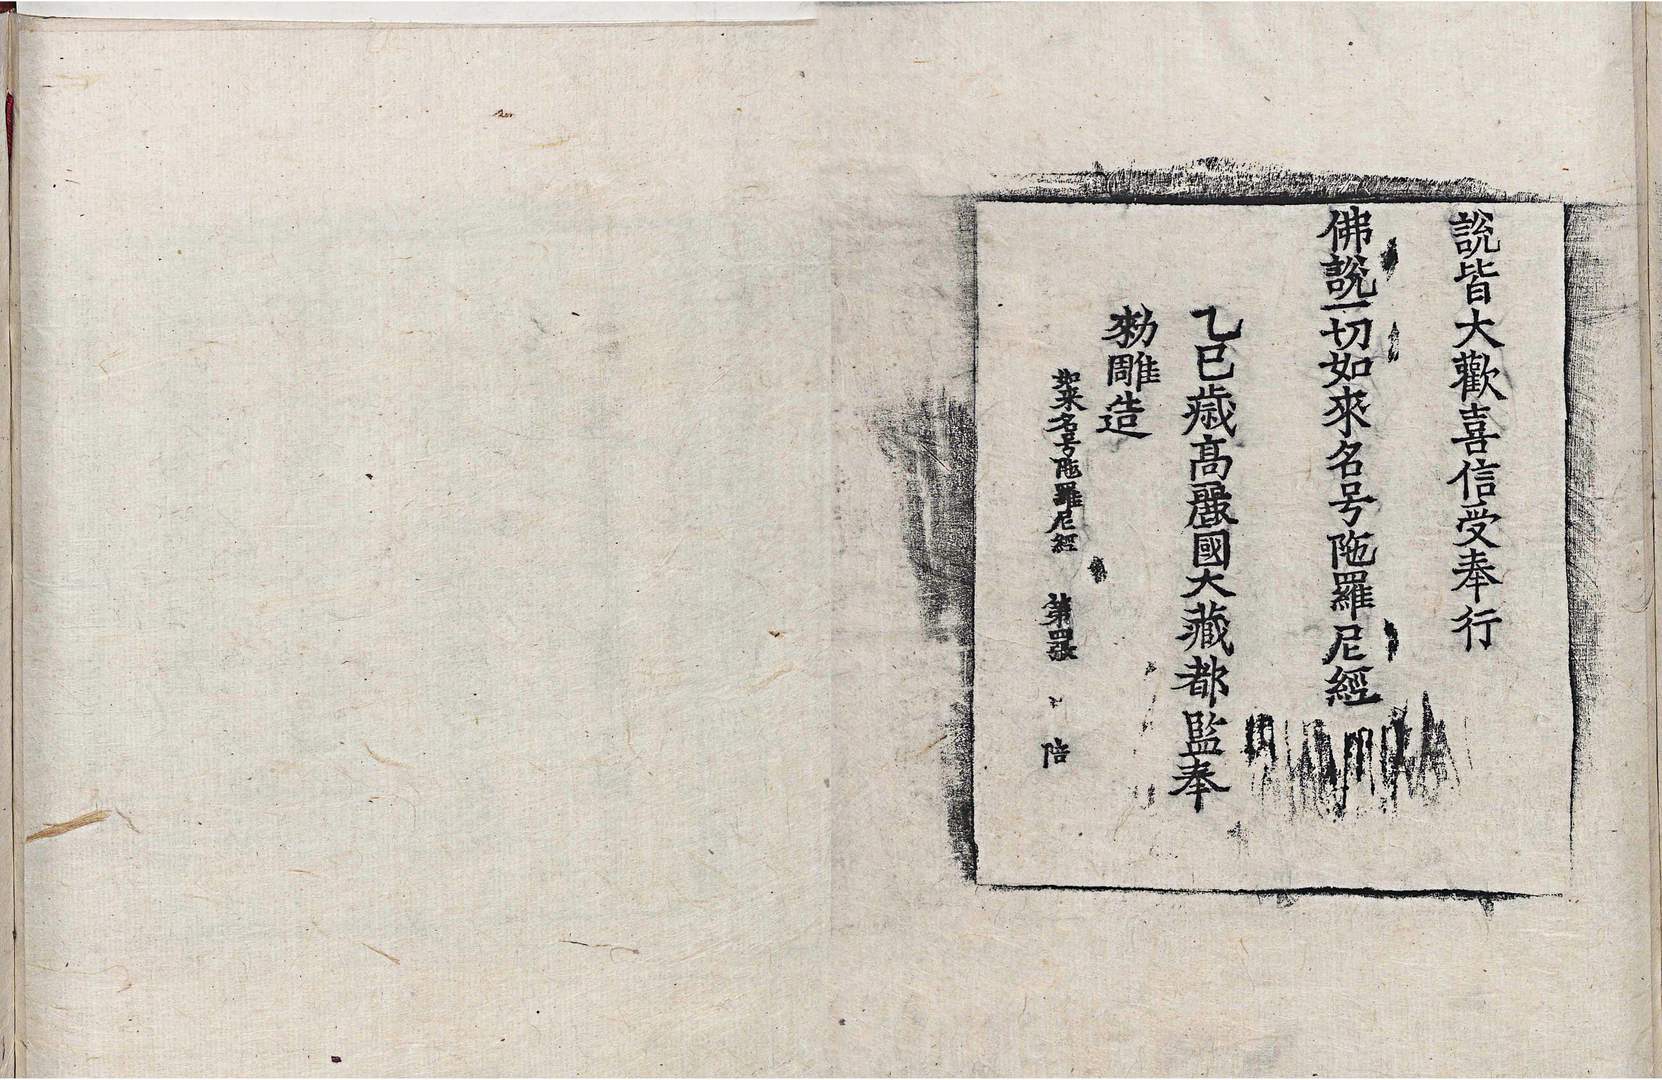 說皆大歡喜信受奉行
佛說一切如來名号陁羅尼經
乙巳歲高麗國大藏都監奉
勑雕造
如来名号陁羅尼經 第四張 陪